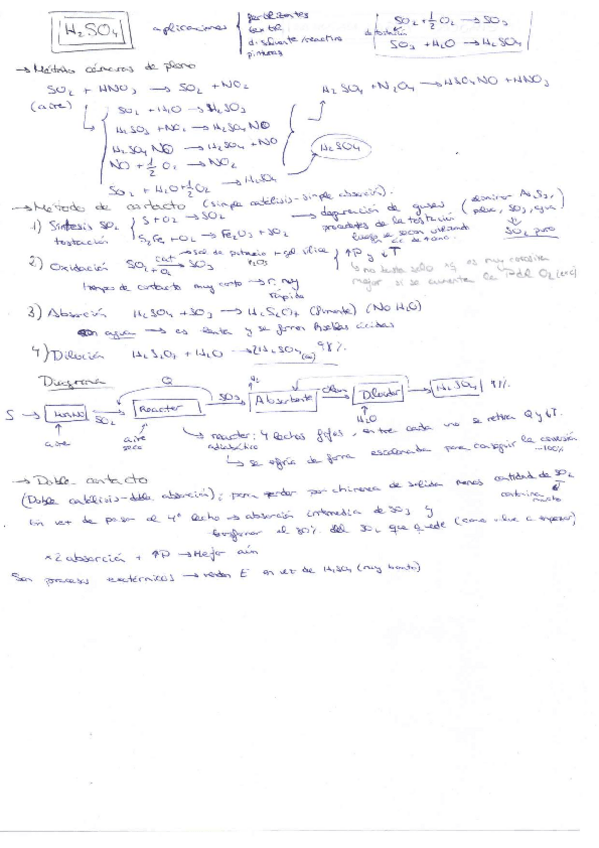 H₂SO₄ aplicaciones { fertilizantes
textil
disolvente/reactivo
pinturas
SO₂ + 1/2 O₂ → SO₃
SO₃ + H₂O → H₂SO₄
→ Método cámaras de plomo
SO₂ + HNO₃ → SO₂ + NO₂
(aire)
H₂SO₄ + N₂O₄ → HSO₄NO + HNO₃
SO₂ + H₂O → H₂SO₃
H₂SO₃ + NO₂ → H₂SO₄NO
H₂SO₄NO → H₂SO₄ + NO
NO + 1/2 O₂ → NO₂
SO₂ + H₂O + 1/2 O₂ → H₂SO₄
H₂SO₄
→ Método de contacto (simple catálisis-simple absorción).
1) Síntesis SO₂ { S + O₂ → SO₂
tostación S₂Fe + O₂ → Fe₂O₃ + SO₂
→ depuración de gases (eliminar As₂S₃,
procedentes de la tostación polvo, SO₃, agua
luego se secan utilizando
SO₂ puro
2) Oxidación SO₂ + O₂ → cat SO₃
↑P y ↓T
tiempo de contacto muy corto → r. muy
rápida
→ no tanto solo xq es muy corrosivo
mejor si se aumenta la P del O₂
3) Absorción H₂SO₄ + SO₃ → H₂S₂O₇ (fumante) (No H₂O)
con agua → es lenta y se forman nieblas ácidas
4) Dilución H₂S₂O₇ + H₂O → 2H₂SO₄ 98%
Diagrama
Q
S → Horno → SO₂ → Reactor → SO₃ → Absorbente → óleum → Diluidor → H₂SO₄ 98%
aire
aire
seco
H₂O
→ reactor: 4 lechos fijos, entre cada uno se retira Q y ↓T.
adiabático
→ se enfría de forma escalonada para conseguir la conversión
~100%
→ Doble contacto
(Doble catálisis-doble absorción); para perder por chimenea de salida menos cantidad de SO₂
contamina
mucho
En vez de pasar al 4º lecho → absorción intermedia de SO₃ y
transformar el 50% del SO₂ que quede
x2 absorción + ↑P → Mejor aún
Son procesos exotérmicos → venden E en vez de H₂SO₄ (muy barato)